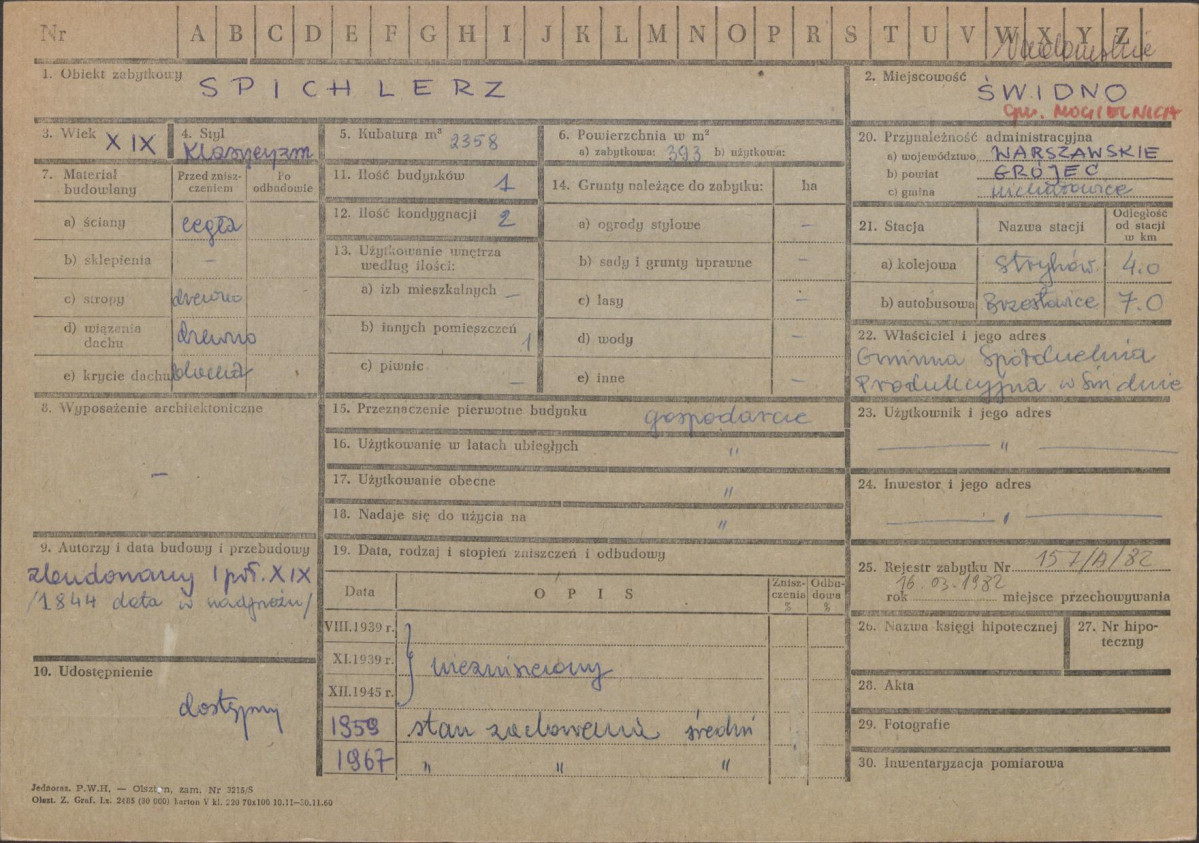 Nr A B C D E F G H I J K L M N O P R S T U V W X Y Z
1. Obiekt zabytkowy SPICHLERZ
2. Miejscowość ŚWIDNO
gm. MOGIELNICA
3. Wiek XIX
4. Styl Klasycyzm
5. Kubatura m³ 2358
6. Powierzchnia w m²
a) zabytkowa: 393 b) użytkowa:
7. Materiał budowlany
Przed zniszczeniem
Po odbudowie
a) ściany cegła
b) sklepienia –
c) stropy drewno
d) wiązania dachu drewno
e) krycie dachu blacha
8. Wyposażenie architektoniczne
–
9. Autorzy i data budowy i przebudowy
zbudowany I poł. XIX
/1844 data w nadprożu/
10. Udostępnienie
dostępny
11. Ilość budynków 1
12. Ilość kondygnacji 2
13. Użytkowanie wnętrza według ilości:
a) izb mieszkalnych –
b) innych pomieszczeń 1
c) piwnic –
14. Grunty należące do zabytku: ha
a) ogrody stylowe –
b) sady i grunty uprawne –
c) lasy –
d) wody –
e) inne –
15. Przeznaczenie pierwotne budynku gospodarcze
16. Użytkowanie w latach ubiegłych "
17. Użytkowanie obecne "
18. Nadaje się do użycia na "
19. Data, rodzaj i stopień zniszczeń i odbudowy
Data OPIS Zniszczenia % Odbudowa %
VIII.1939 r.
XI.1939 r. niezniszczony
XII.1945 r.
1959 stan zachowania średni
1967 " " "
20. Przynależność administracyjna
a) województwo WARSZAWSKIE
b) powiat GRÓJEC
c) gmina Michałowice
21. Stacja Nazwa stacji Odległość od stacji w km
a) kolejowa 4.0
b) autobusowa 7.0
22. Właściciel i jego adres
Gminna Spółdzielnia
Produkcyjna w Świdnie
23. Użytkownik i jego adres
— " —
24. Inwestor i jego adres
— " —
25. Rejestr zabytku Nr 157/A/82
rok 16.03.1982 miejsce przechowywania
26. Nazwa księgi hipotecznej
27. Nr hipoteczny
28. Akta
29. Fotografie
30. Inwentaryzacja pomiarowa
Jednoraz. P.W.H. — Olsztyn, zam. Nr 3215/S
Olszt. Z. Graf. Lz. 2405 (30 000) karton V kl. 220 70x100 10.11—30.11.60